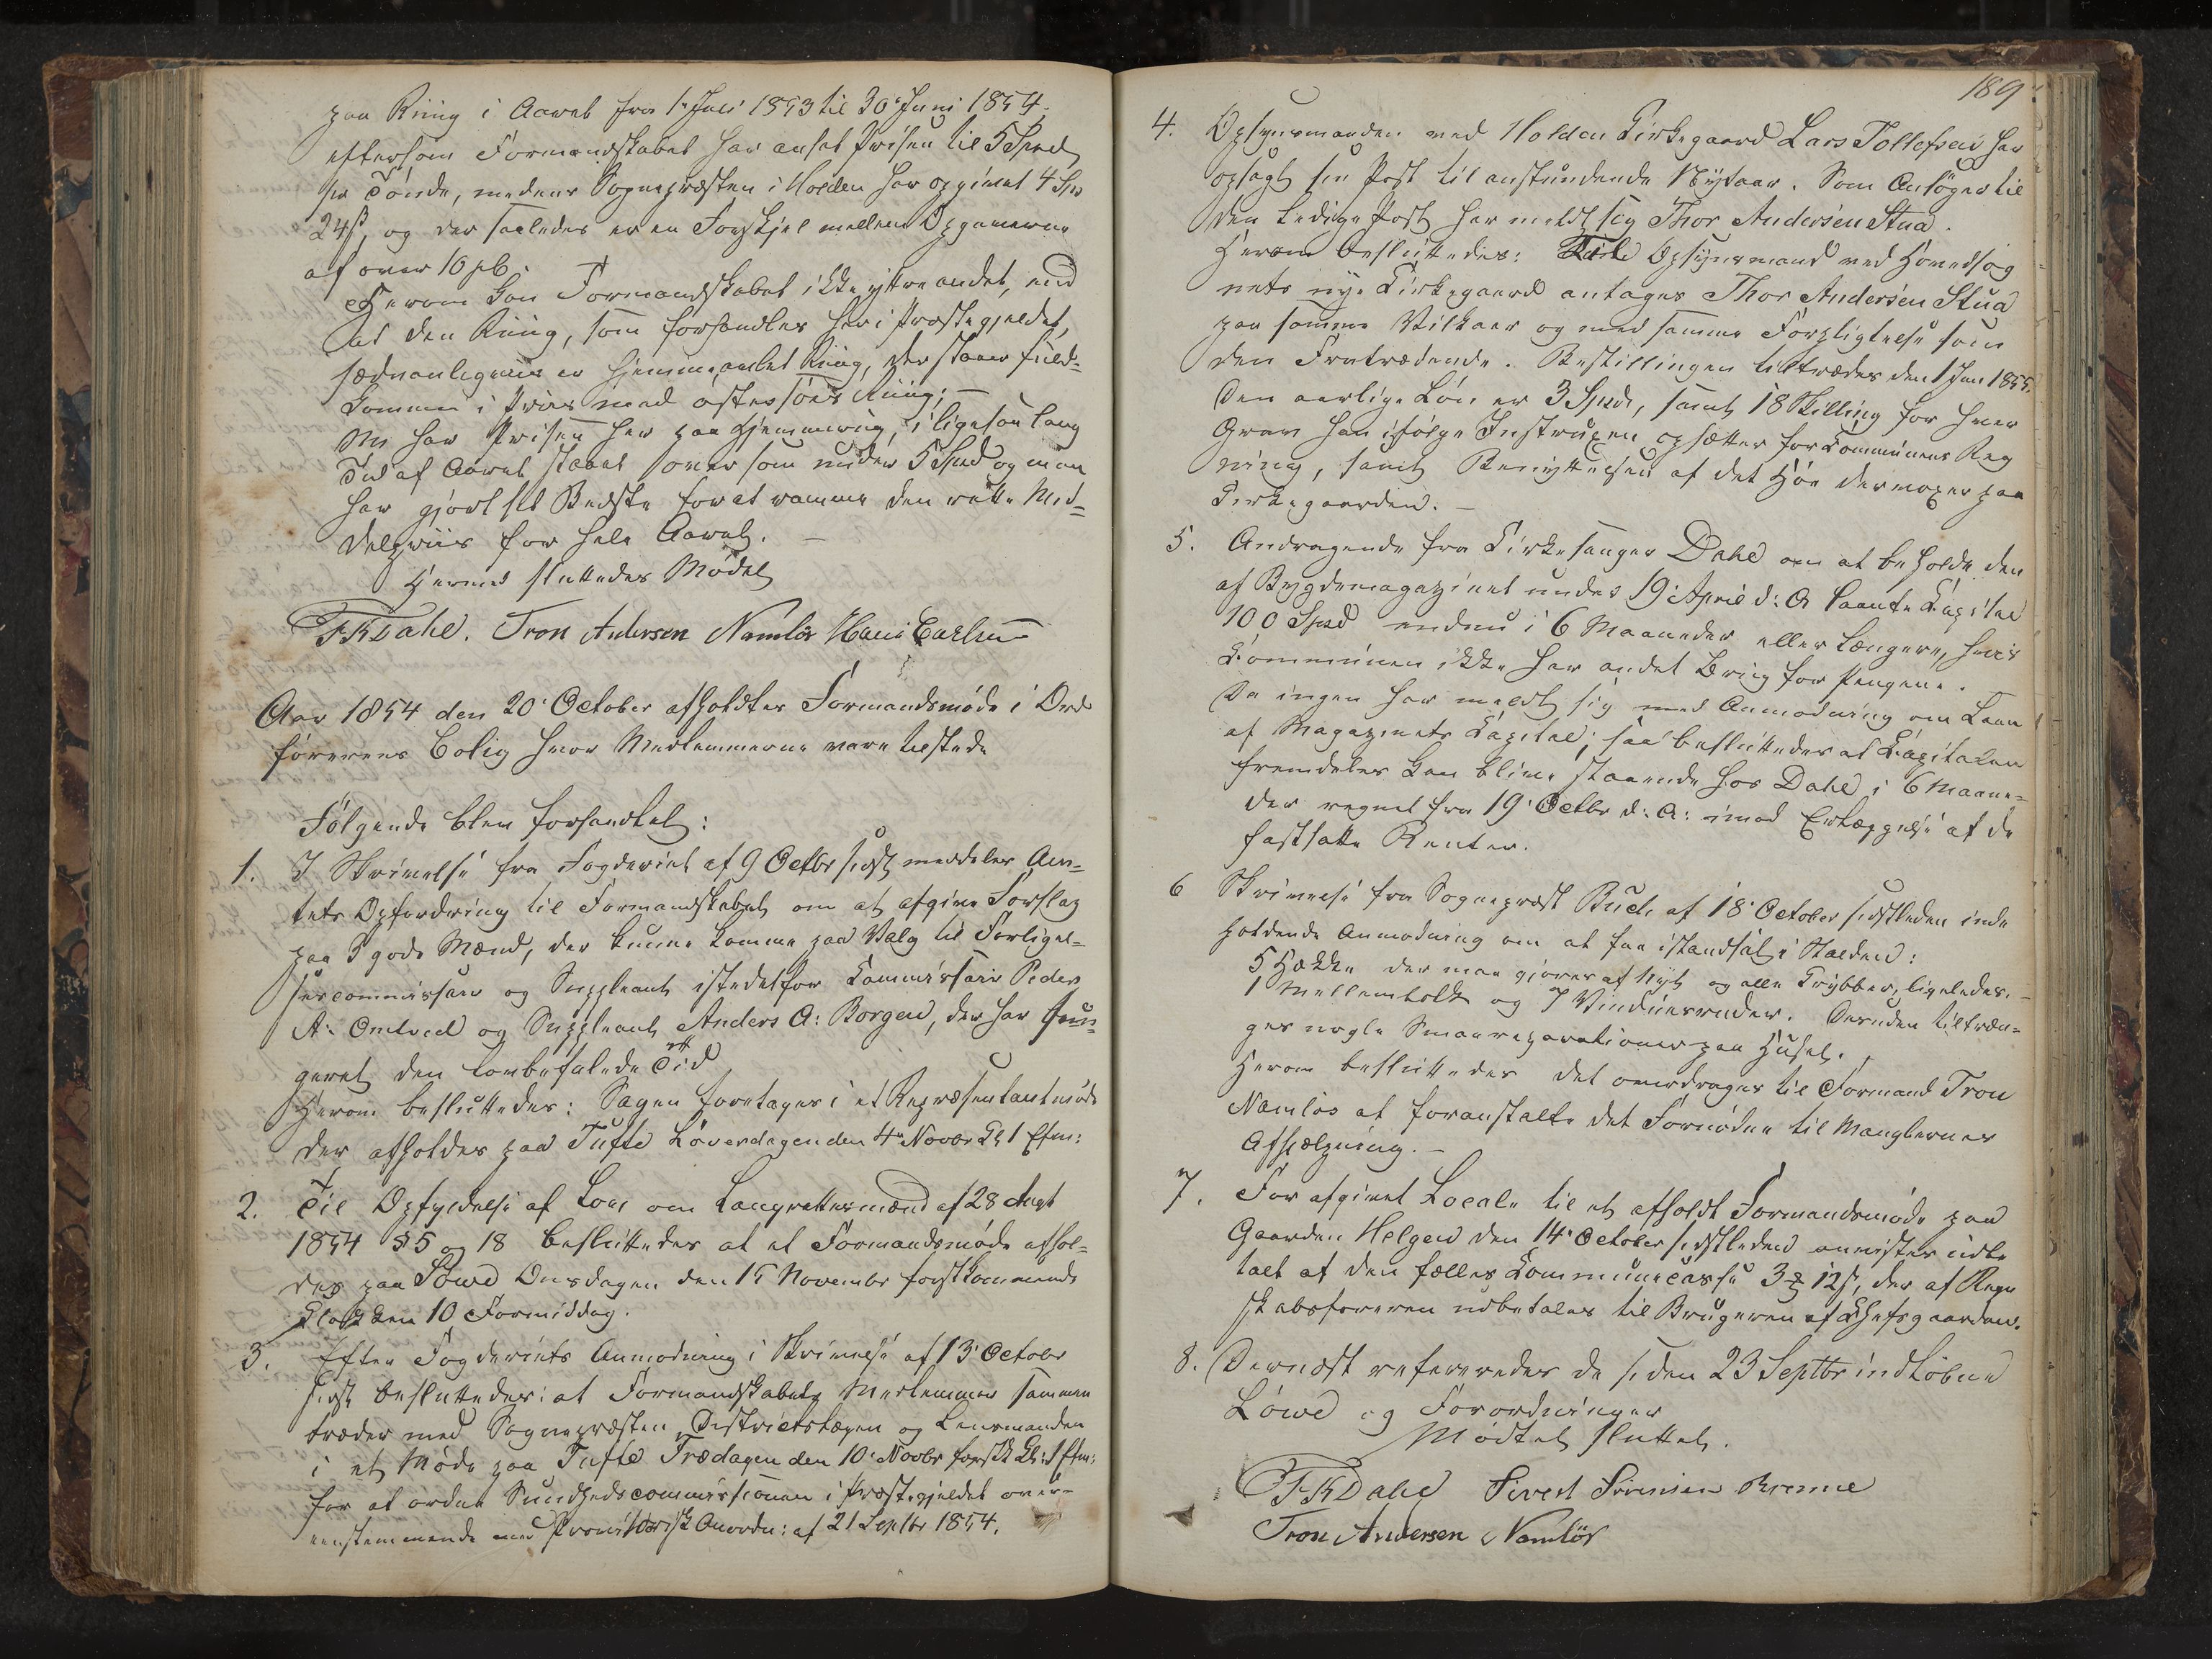 paa Riing i Aaret fra 1. Juli 1853 til 30. Juni 1854.
eftersom Formandskabet har ansat Prisen til 5 Spd
pr Tønde, medens Sognepræsten i Holden har opgivet 4 Spd
24 s, og der saaledes er en Forskjel mellem Opgaverne
af over 16 pC.
Herom kan Formandskabet ikke yttre andet, end
at den Riing, som forhandles her i Præstegjeldet,
sædvanligviis er hjemmeavlet Riing, der staaer fuld-
kommen i Priis med østersøisk Riing;
har Prisen her paa Hjemmeriing, i ligesaa lang
Tid af Aaret staaet over som under 5 Spd og man
har gjort sit Bedste for at ramme den rette Mid-
delpriis for hele Aaret. —
Hermed sluttedes Mødet
FKDahl. Tron Andersen Namløs Hans Carlsen
Aar 1854 den 20. October afholdtes Formandsmøde i Ord
førerens Bolig hvor Medlemmerne vare tilstede
Følgende blev forhandlet:
1. I Skrivelse fra Fogderiet af 9 Octbr sidst meddeles Am-
tets Opfordring til Formandskabet om at afgive Forslag
paa 3 gode Mænd, der kunne komme paa Valg til Forligel-
sescommissair og Suppleant istedetfor Kommissair Peder
A. Omtved og Suppleant Anders A: Borgen, der har fun-
geret den lovbefalede Tid
Herom besluttedes: Sagen foretages i et Repræsentantmøde
der afholdes paa Tufte Løverdagen den 4 Novbr Kl 1 Efm:
2. Til Opfyldelse af Lov om Laugrettesmænd af 28 Augt
1854 § 5 og 18 besluttedes at et Formandsmøde afhol-
des paa Søwe Onsdagen den 15 Novembr førstkommende
Klokken 10 Formiddag.
3. Efter Fogderiets Anmodning i Skrivelse af 13. Octobr
sidst besluttedes: at Formandskabets Medlemmer sammen
træder med Sognepræsten, Districtslægen og Lensmanden
i et Møde paa Tufte Fredagen den 10. Novbr førstk Kl: 1 Efm:
for at ordne Sundhedscommissionen i Præstegjeldet over-
eenstemmende med Provisorisk Anordn: af 21 Septbr 1854.
189
4. Opsynsmanden ved Holden Kirkegaard Lars Tollefsen har
opsagt sin Post til anstundende Nytaar. Som Ansøger til
den ledige Post har meldt sig Thor Andersen Stua.
Herom besluttedes: Til Opsynsmand ved Hovedsog
nets nye Kirkegaard antages Thor Andersen Stua
paa samme Vilkaar og med samme Forpligtelse som
den Fratrædende. Bestillingen tiltrædes den 1 Jan 1855.
Den aarlige Løn er 3 Spd, samt 18 Skilling for hver
Grav han ifølge Instruxen opsætter for Kommunens Reg
ning, samt Benyttelsen af det Høe der voxer paa
Kirkegaarden. —
5. Andragende fra Kirkesanger Dahl om at beholde den
af Bygdemagazinet under 19. April d: A laante Kapital
100 Spd endnu i 6 Maaneder eller længere, hvis
Kommunen ikke har andet Brug for Pengene.
Da ingen har meldt sig med Anmodning om Laan
af Magazinets Kapital; saa besluttedes at Kapitalen
fremdeles kan blive staaende hos Dahl i 6 Maane-
der regnet fra 19. Octbr d: A: imod Erlæggelse af de
fastsatte Renter.
6 Skrivelse fra Sognepræst Buch af 18. October sidstleden inde
holdende Anmodning om at faa istandsat i Stalden:
5 Hække der maa gjøres af Nyt og alle Krybber, ligeledes. —
1 Mellembolk og 7 Vinduesruder. Desuden tiltræn-
ges nogle Smaareparationer paa Huset.
Herom besluttedes det overdrages til Formand Tron
Namløs at foranstalte det Fornødne til Manglernes
Afhjælpning. —
7. For afgivet Locale til et afholdt Formandsmøde paa
Gaarden Helgen den 14. October sidstleden anvistes udbe
talt af den fælles Kommunecasse 3 12 s, der af Regn
skabsføreren udbetales til Brugeren af Chefsgaarden.
8. Dernæst refereredes de siden 23 Septbr indløbne
Løve og Forordninger
Mødtet sluttet.
FKDahl Sivert Sørensen Brenne
Tron Andersen Namløs